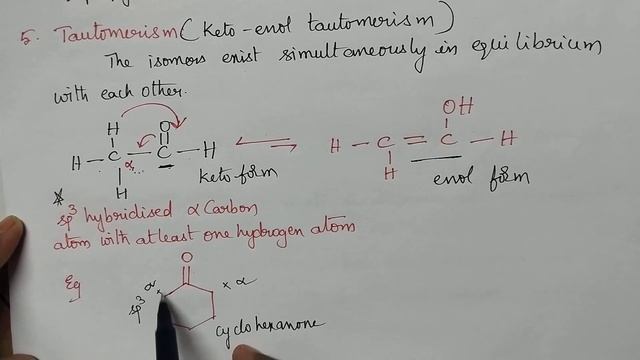 5. Tautomerism (Keto-enol tautomerism)
The isomers exist simultaneously in equilibrium
with each other.
H O OH
H - C - C - H ⇌ H - C = C - H
α
H H
keto form enol form
*
sp³ hybridised α Carbon
atom with at least one hydrogen atom
Eg O
sp³ α × × α
cyclohexanone